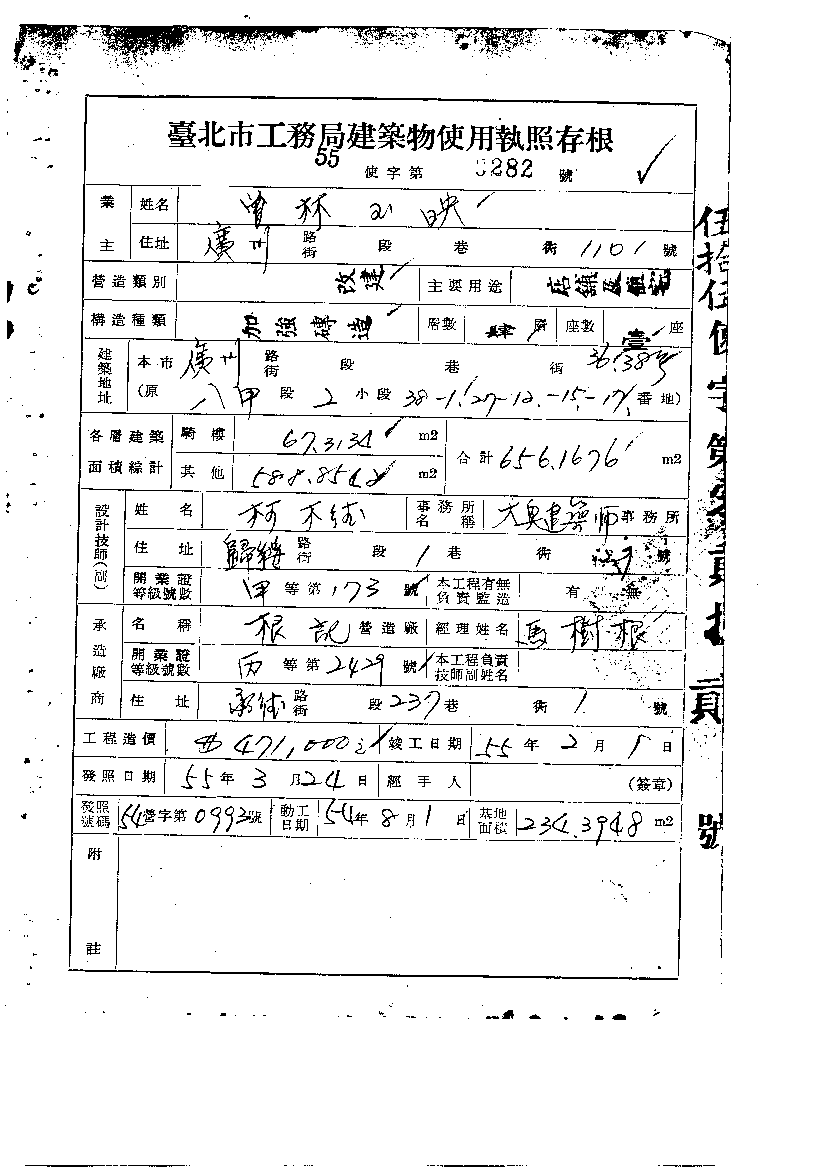 臺北市工務局建築物使用執照存根
55 使字第 0282 號
業主 姓名 曾林玉映
住址 廣州 路街 段 巷 街 110 1 號
營造類別 改建 主要用途 店鋪及住宅
構造種類 加強磚造 層數 肆層 座數 壹座
建築地址 本市 廣州 路街 段 巷 街 36.38號
(原 八甲 段 2 小段 38-1.27-12.-15.-17. 番地)
各層建築面積綜計 騎樓 67.3134 m2 合計 656.1676 m2
其他 588.8542 m2
設計技師(副) 姓名 柯 事務所名稱 建築師事務所
住址 歸綏 路街 段 1 巷 街 號
開業證等級號數 甲等第 173 號 本工程有無負責監造 有 無
承造廠商 名稱 根記 營造廠 經理姓名 馬樹根
開業證等級號數 丙等第 2429 號 本工程負責技師副姓名
住址 承德 路街 段 237 巷 街 1 號
工程造價 471,000 竣工日期 55年2月1日
發照日期 55年3月24日 經手人 (簽章)
發照號碼 54營字第0993號 動工日期 54年8月1日 基地面積 234.3948 m2
附註
伍拾伍使字第 貳 號